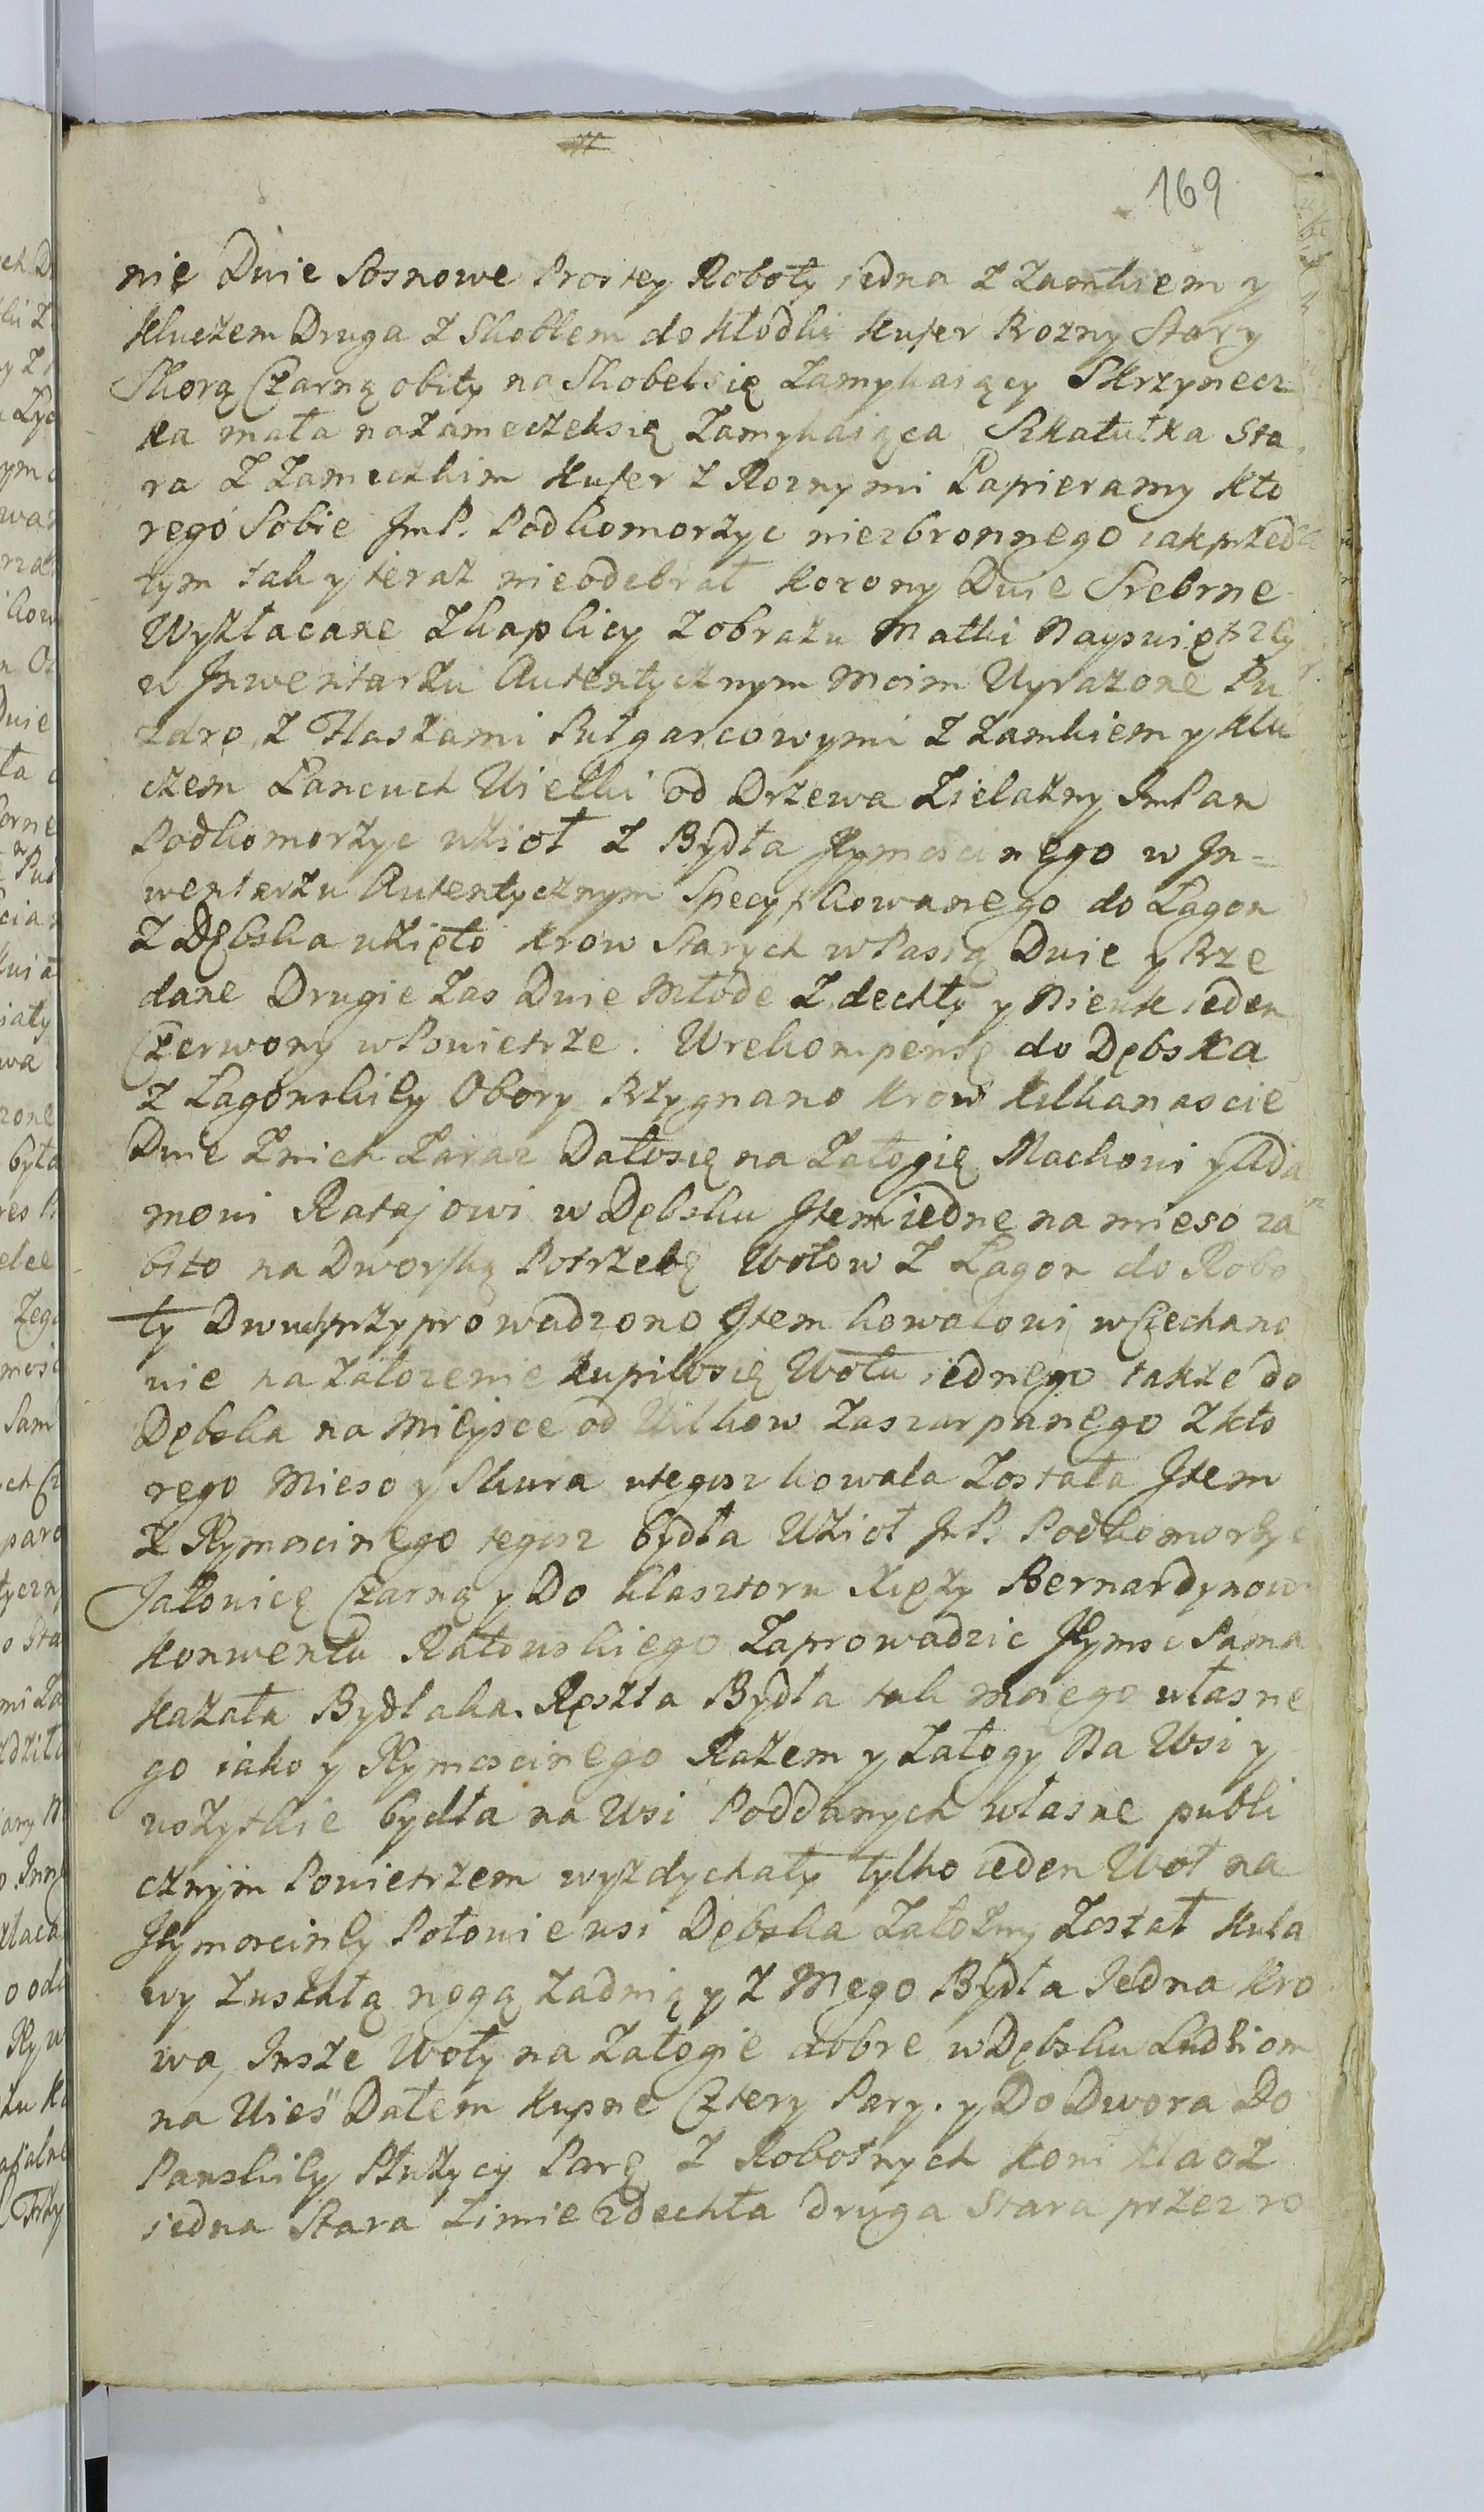 169
nię Dwie Sosnowe Prostey Roboty iedna z Zamkiem y
kluczem Druga z Skoblem do kłodki kufer Rozny Stary
Skorą Czarną obity na Skobel się Zamykaiący Skrzynecz
ka mała na Zameczek się Zamykaiąca Szkatułka Sta
ra z Zameczkiem kufer z Roznymi Papieramy kto
rego Sobie JmP. Podkomorzyc niezbronnego iak przed
tym tak y teraz nieodebrał korony Dwie Srebrne
Wyzłacane z kaplicy z obrazu Matki Nayswiętrzey
w Inwentarzu Autentycznym Moim Wyrazone Pu
zdro z Flaszami Pułgarcowymi z zamkiem y klu
czem Lancuch Wielki od Drzewa Zielazny JmPan
Podkomorzyc wzioł z Bydła Jeymoscinego w In=
wentarzu Autentycznym Specyfikowanego do Łagon
z Dębska wzięto krow Starych w Pasią Dwie y Prze
dane Drugie Zas Dwie Młode Zdechły y Bienk ieden
Czerwony w Powietrze. W rekompensę do Dębska
z Łagonskiey Obory Przygnano krow kilkanascie
Dwie z nich Zaraz Dało się na Załogię Machowi y Ada
mowi Ratajowi w Dębsku Item iednę na mieso za
bito na Dworską Potrzebę Wołow z Łagon do Robo
ty Dwuch przyprowadzono Item kowalowi w Ciechano
wie na założenie kupiło się Wołu iednego takze do
Dębska na Mieysce od Wilkow Zaszarpanego z kto
rego Mieso y Skura u tegosz kowala Została Item
z Jeymoscinego tegosz bydła Wzioł JmP. Podkomorzyc
Jałowicę Czarną y Do klasztoru Xięży Bernardynow
konwentu Ratowskiego Zaprowadzic Jeymsc Sama
kazała Bydlaka. Reszta Bydła tak moiego własne
go iako y Jeymoscinego Razem y Załogy Na Wsi y
wszytkie bydła na Wsi Poddanych własne publi
cznym Powietrzem wyzdychały tylko ieden Woł na
Jeymosciney Połowie wsi Dębska Załozny Został kula
wy z uszłą nogą zadnią y z Mego Bydła Jedna kro
wa, Insze Woły na Załogie dobre w Dębsku Ludziom
na Wieś Dałem kupne Cztery Pary. y Do Dwora Do
Panskiey Płużycy Parę z Robotnych koni klacz
iedna Stara Zimie zdechła druga Stara przez ro